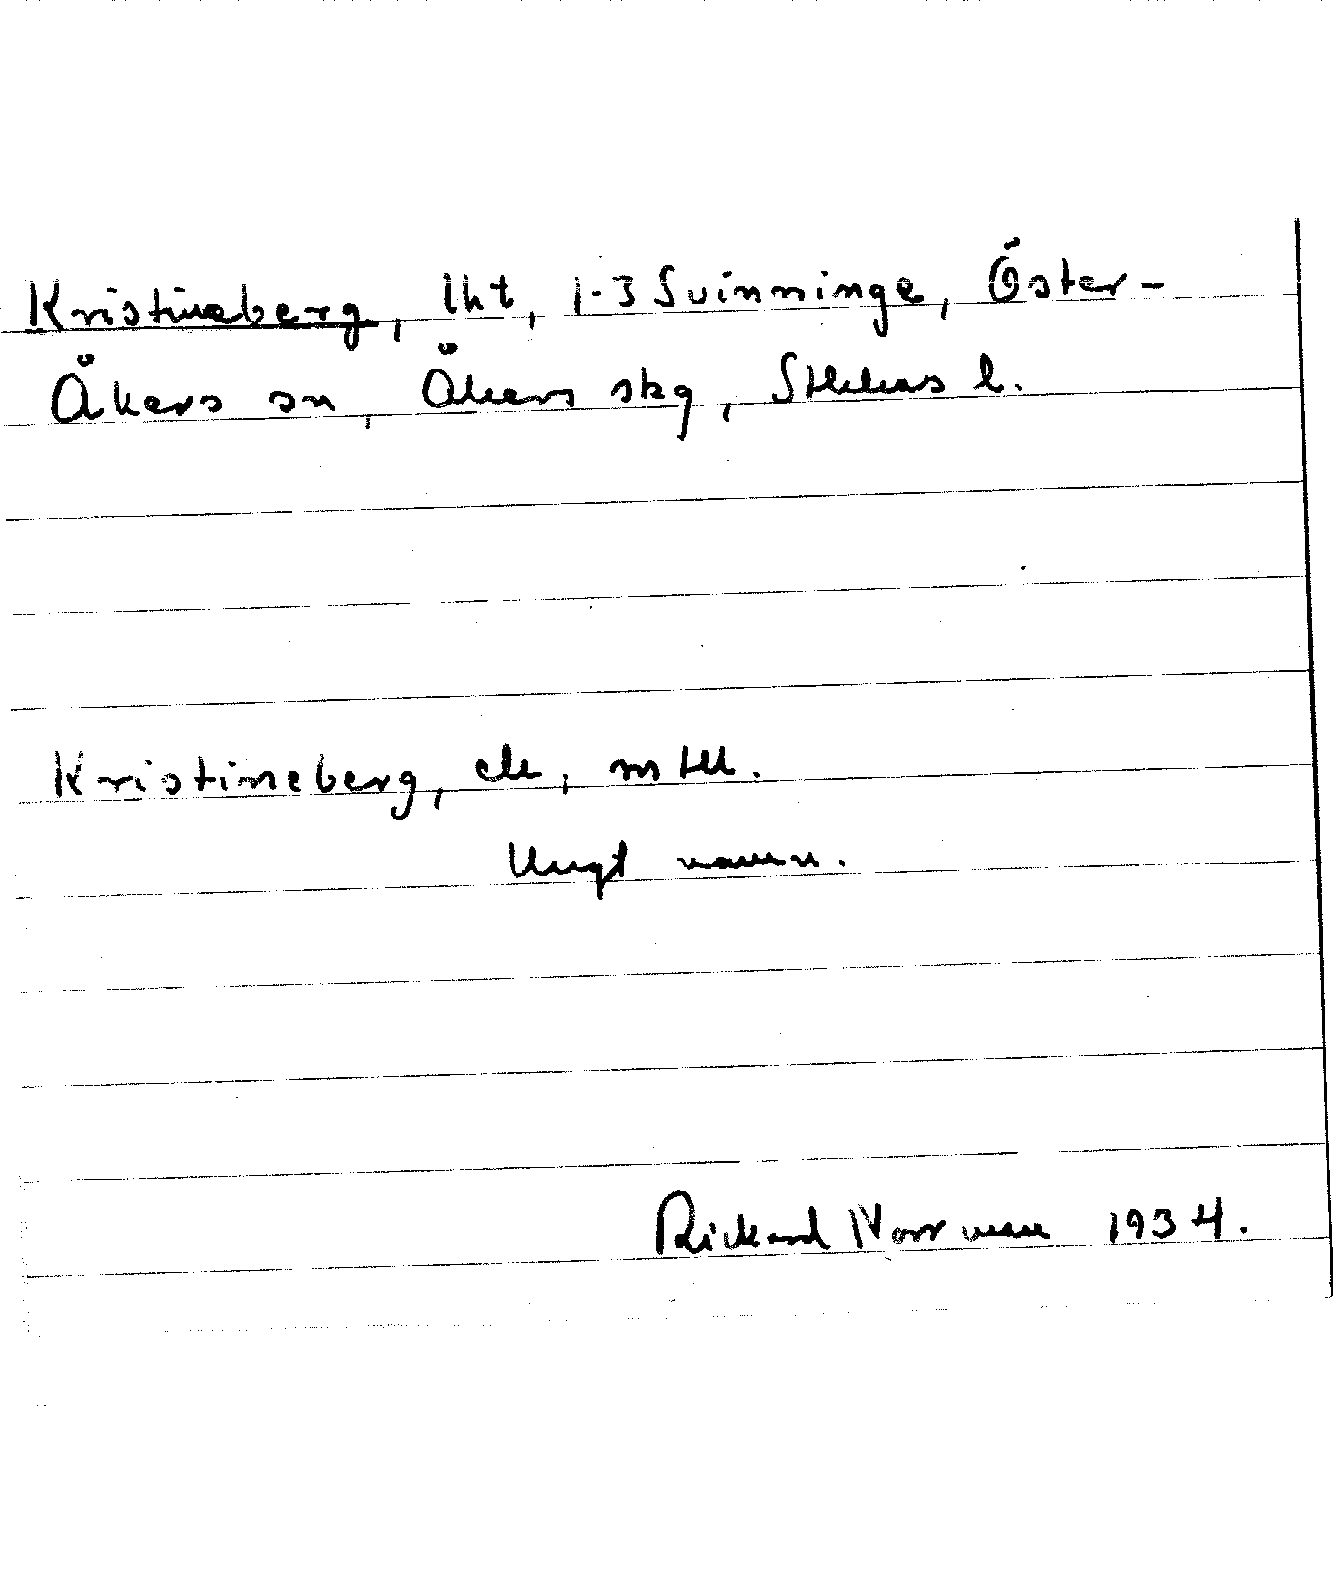 Kristineberg, lht, 1-3 Svinninge, Öster-
Åkers sn, Åkers skg, Sthlms l.
Kristineberg, ek, mtll.
Ungt namn.
Rickard Norrman 1934.